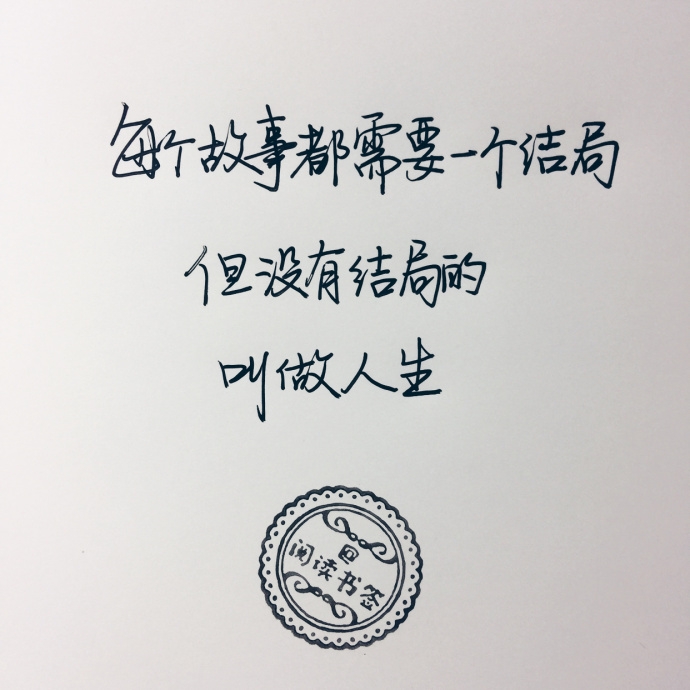 每个故事都需要一个结局
但没有结局的
叫做人生
阅读书签